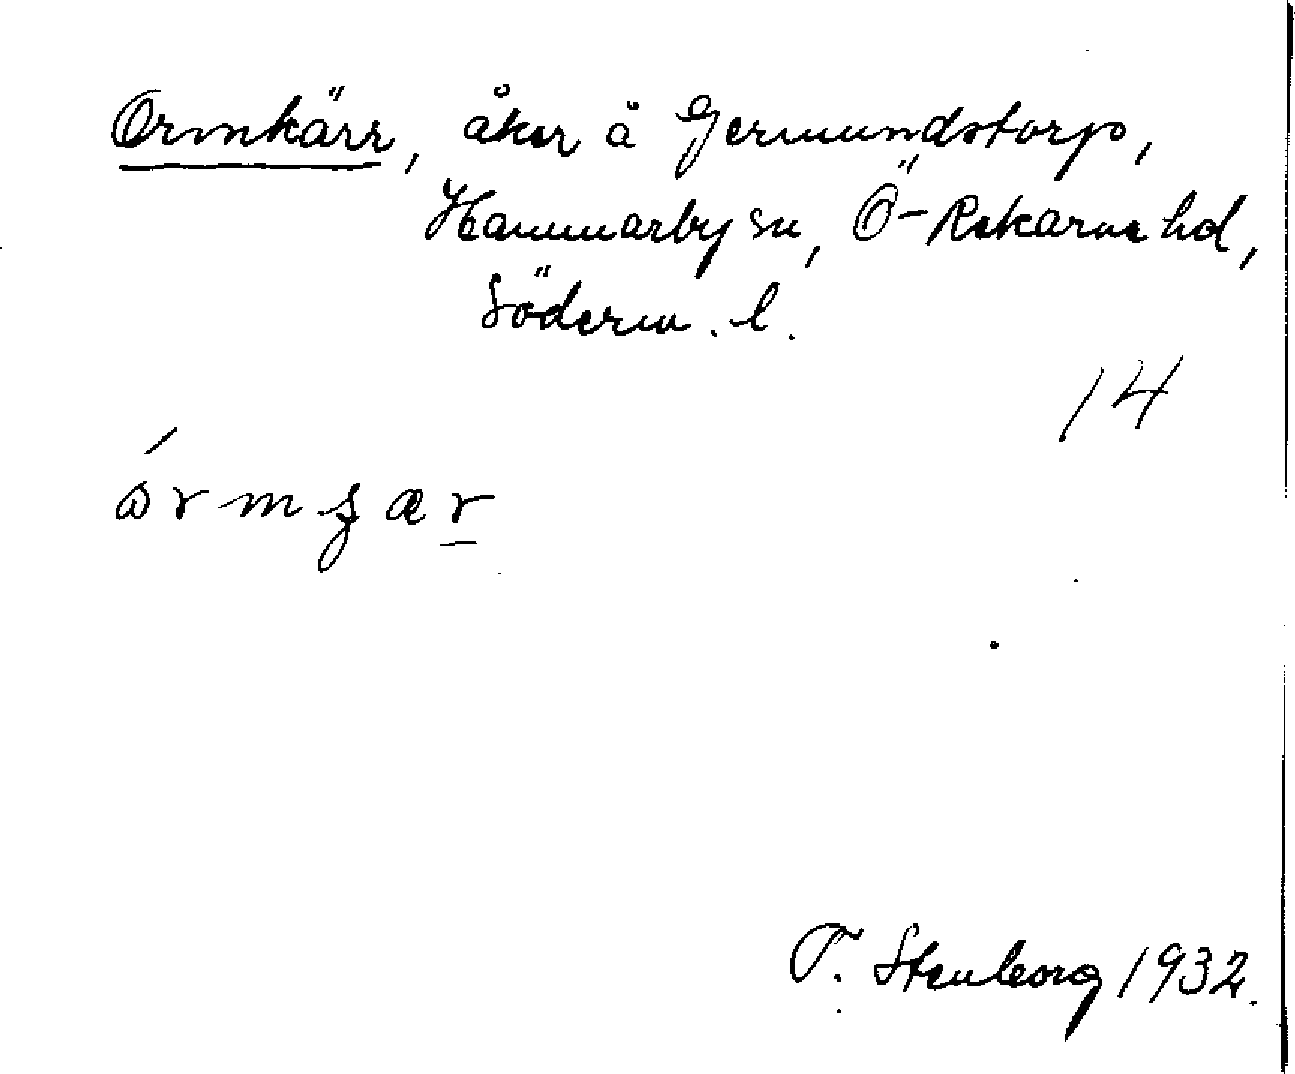 Ormkärr, åker å Germundstorp,
Hammarby sn, Ö-Rekarne hd,
Söderm. l.
14
T. Stenborg 1932.